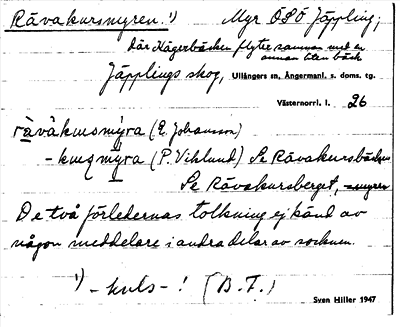 Rävakursmyren.¹) Myr ÖSÖ Jäppling,
där Hägerbäcken flyter samman med en
annan liten bäck
Jäpplings skog, Ullångers sn, Ångermanl. s. doms. tg.
Västernorrl. l. 26
(E. Johansson)
(P. Viklund) Se Rävakursbäcken
Se Rävakursberget, -myren
De två förledernas tolkning ej känd av
någon meddelare i andra delar av socknen.
¹) -kuls-! (B. F.)
Sven Hiller 1947